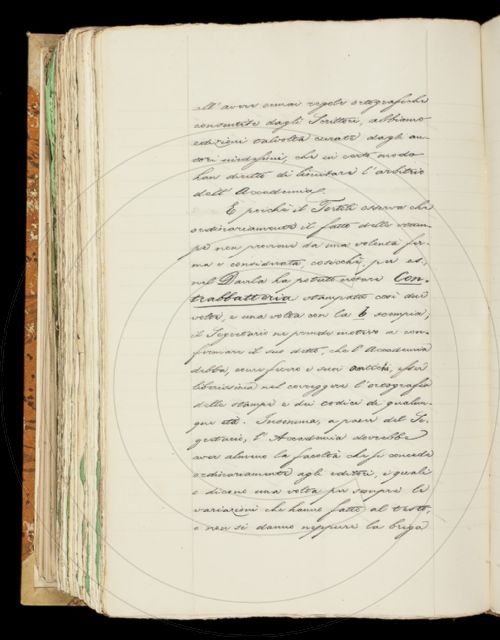 all'avere ormai regole ortografiche
consentite dagli Scrittori, abbiamo
edizioni talvolta curate dagli au-
tori medesimi, che in certo modo
han diritto di limitare l'arbitrio
dell'Accademia.
E poichè il Tortoli osserva che
ordinariamente il fatto delle stam-
pe non proviene da una volontà fer-
ma e considerata, cosicchè, per es.,
nel Davila ha potuto notare Con-
trabbatteria stampato così due
volte, e una volta con la b scempia,
il Segretario ne prende motivo a con-
fermare il suo detto, che l'Accademia
debba, come fecero i suoi antichi, esser
liberissima nel correggere l'ortografia
delle stampe e dei codici di qualun-
que età. Insomma, a parere del Se-
gretario, l'Accademia dovrebbe
aver almeno la facoltà che si concede
ordinariamente agli editori, i quali
o dicono una volta per sempre le
variazioni che hanno fatto al testo,
o non si danno neppure la briga